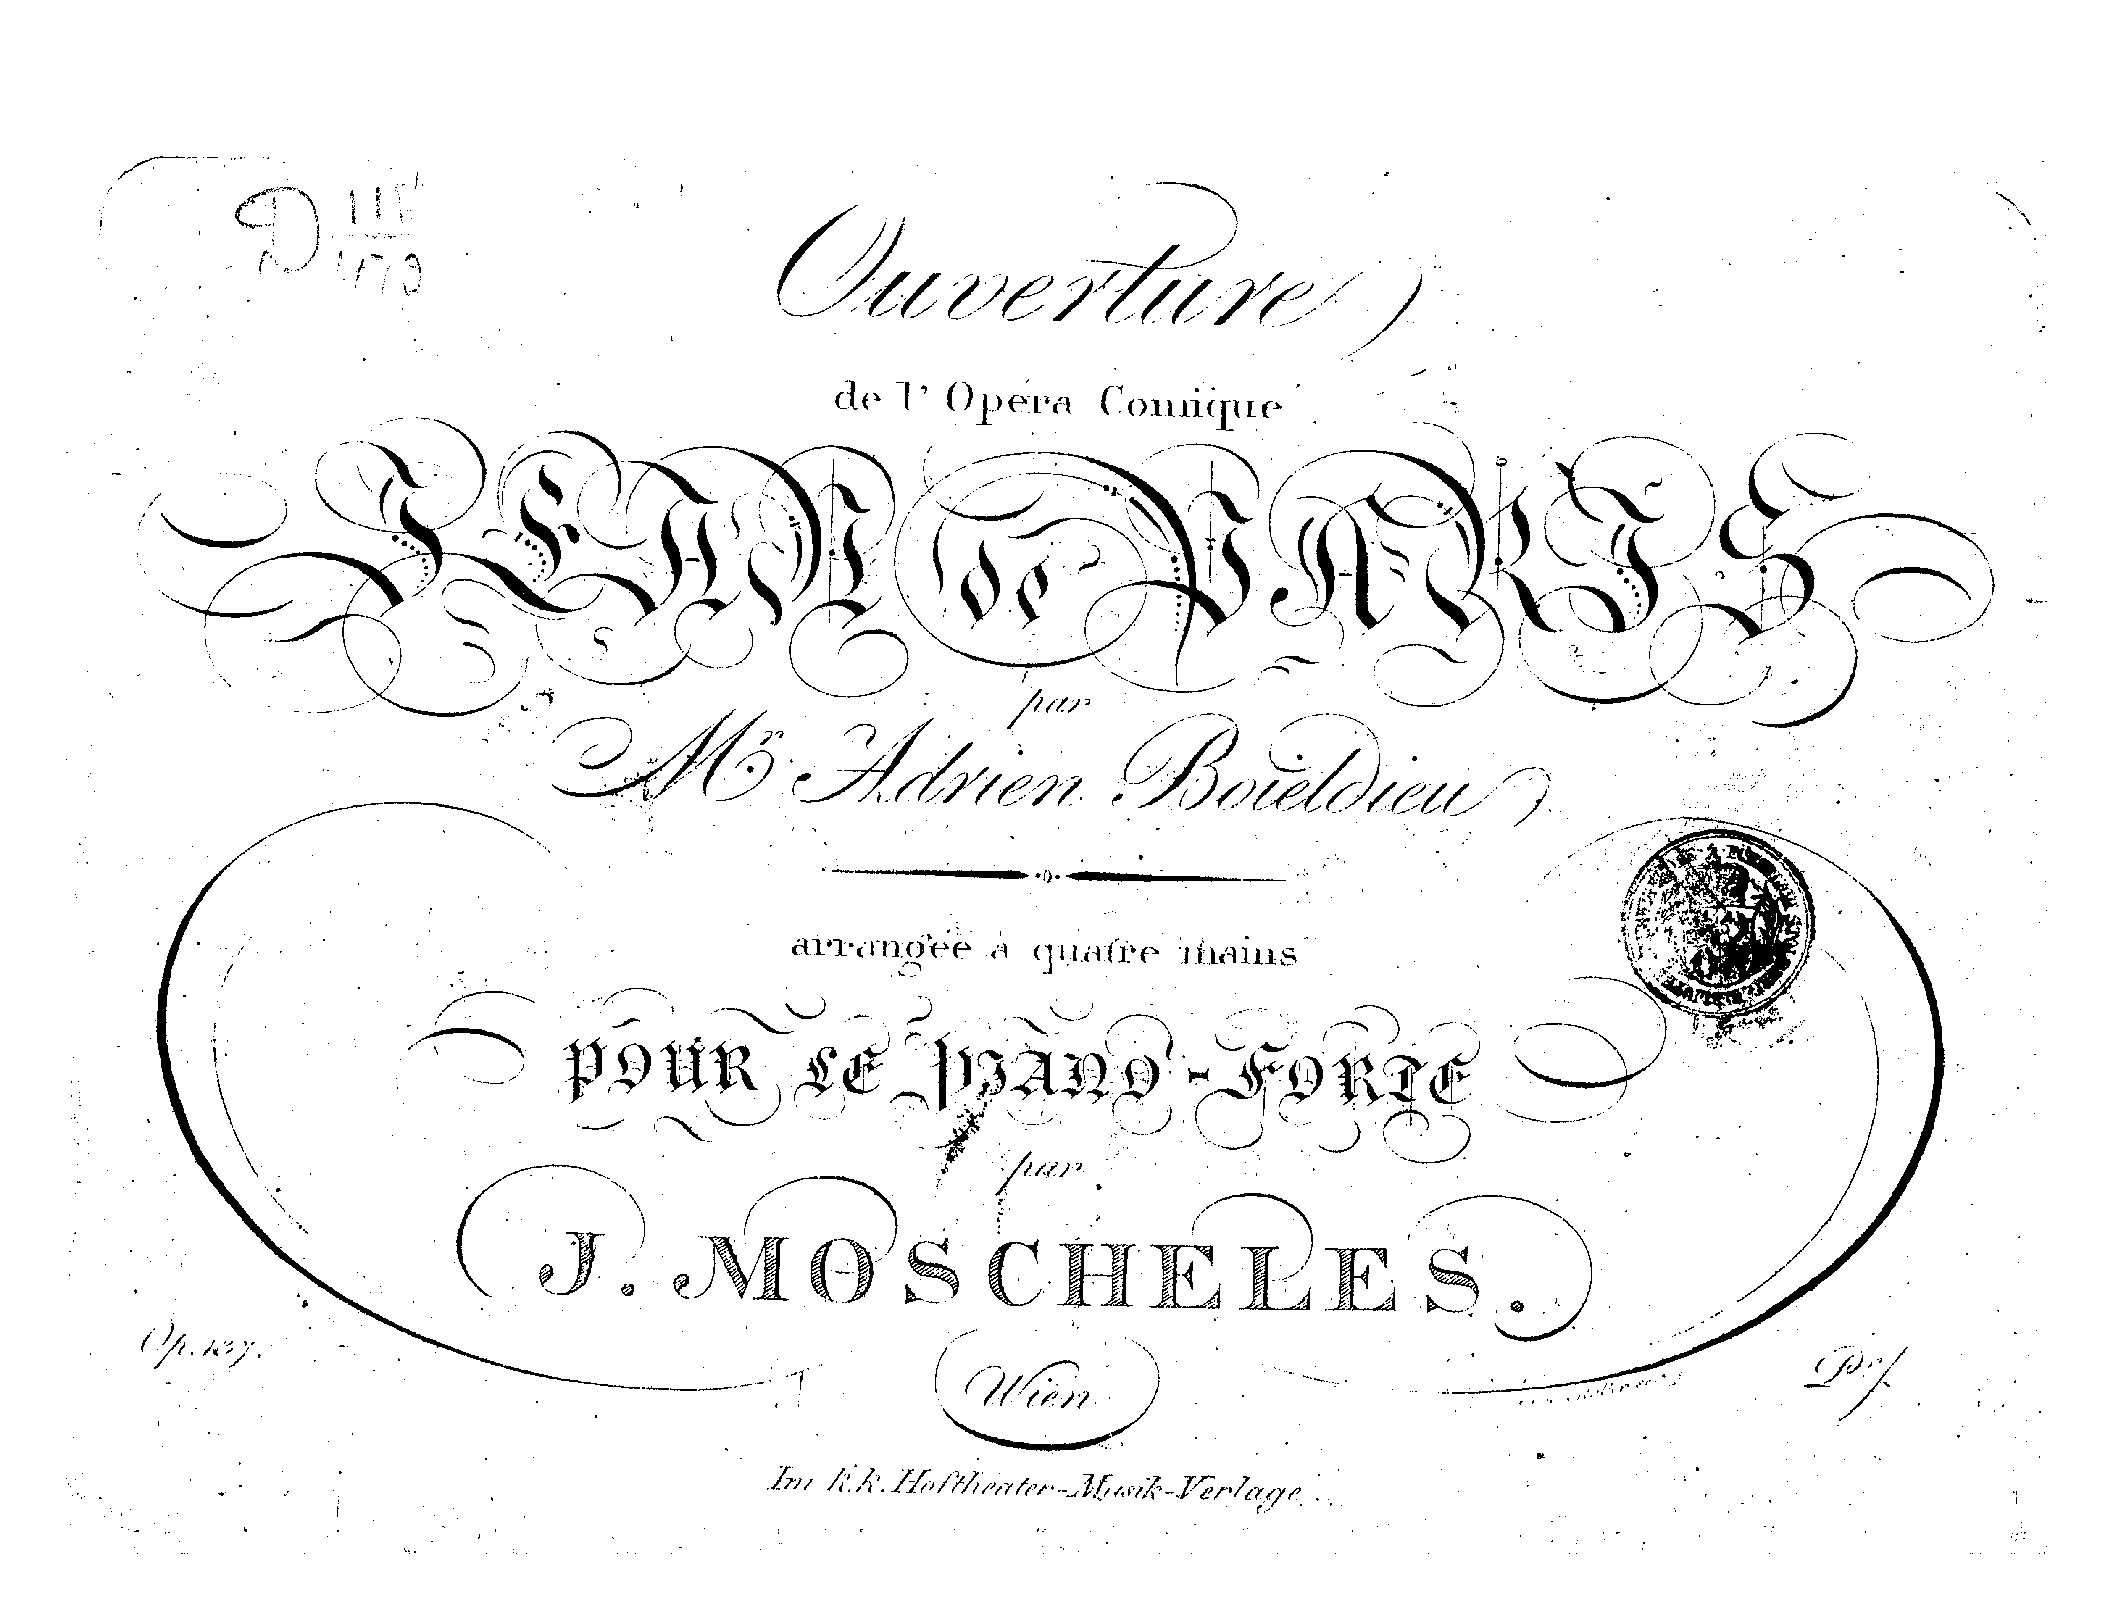 Ouverture
de l' Opéra Comique
JEAN de PARIS
par
Mr. Adrien Boieldieu
arrangée à quatre mains
POUR LE PIANO-FORTE
par
J. MOSCHELES.
Op. 137.
Wien
Pr.
Im k.k. Hoftheater-Musik-Verlage